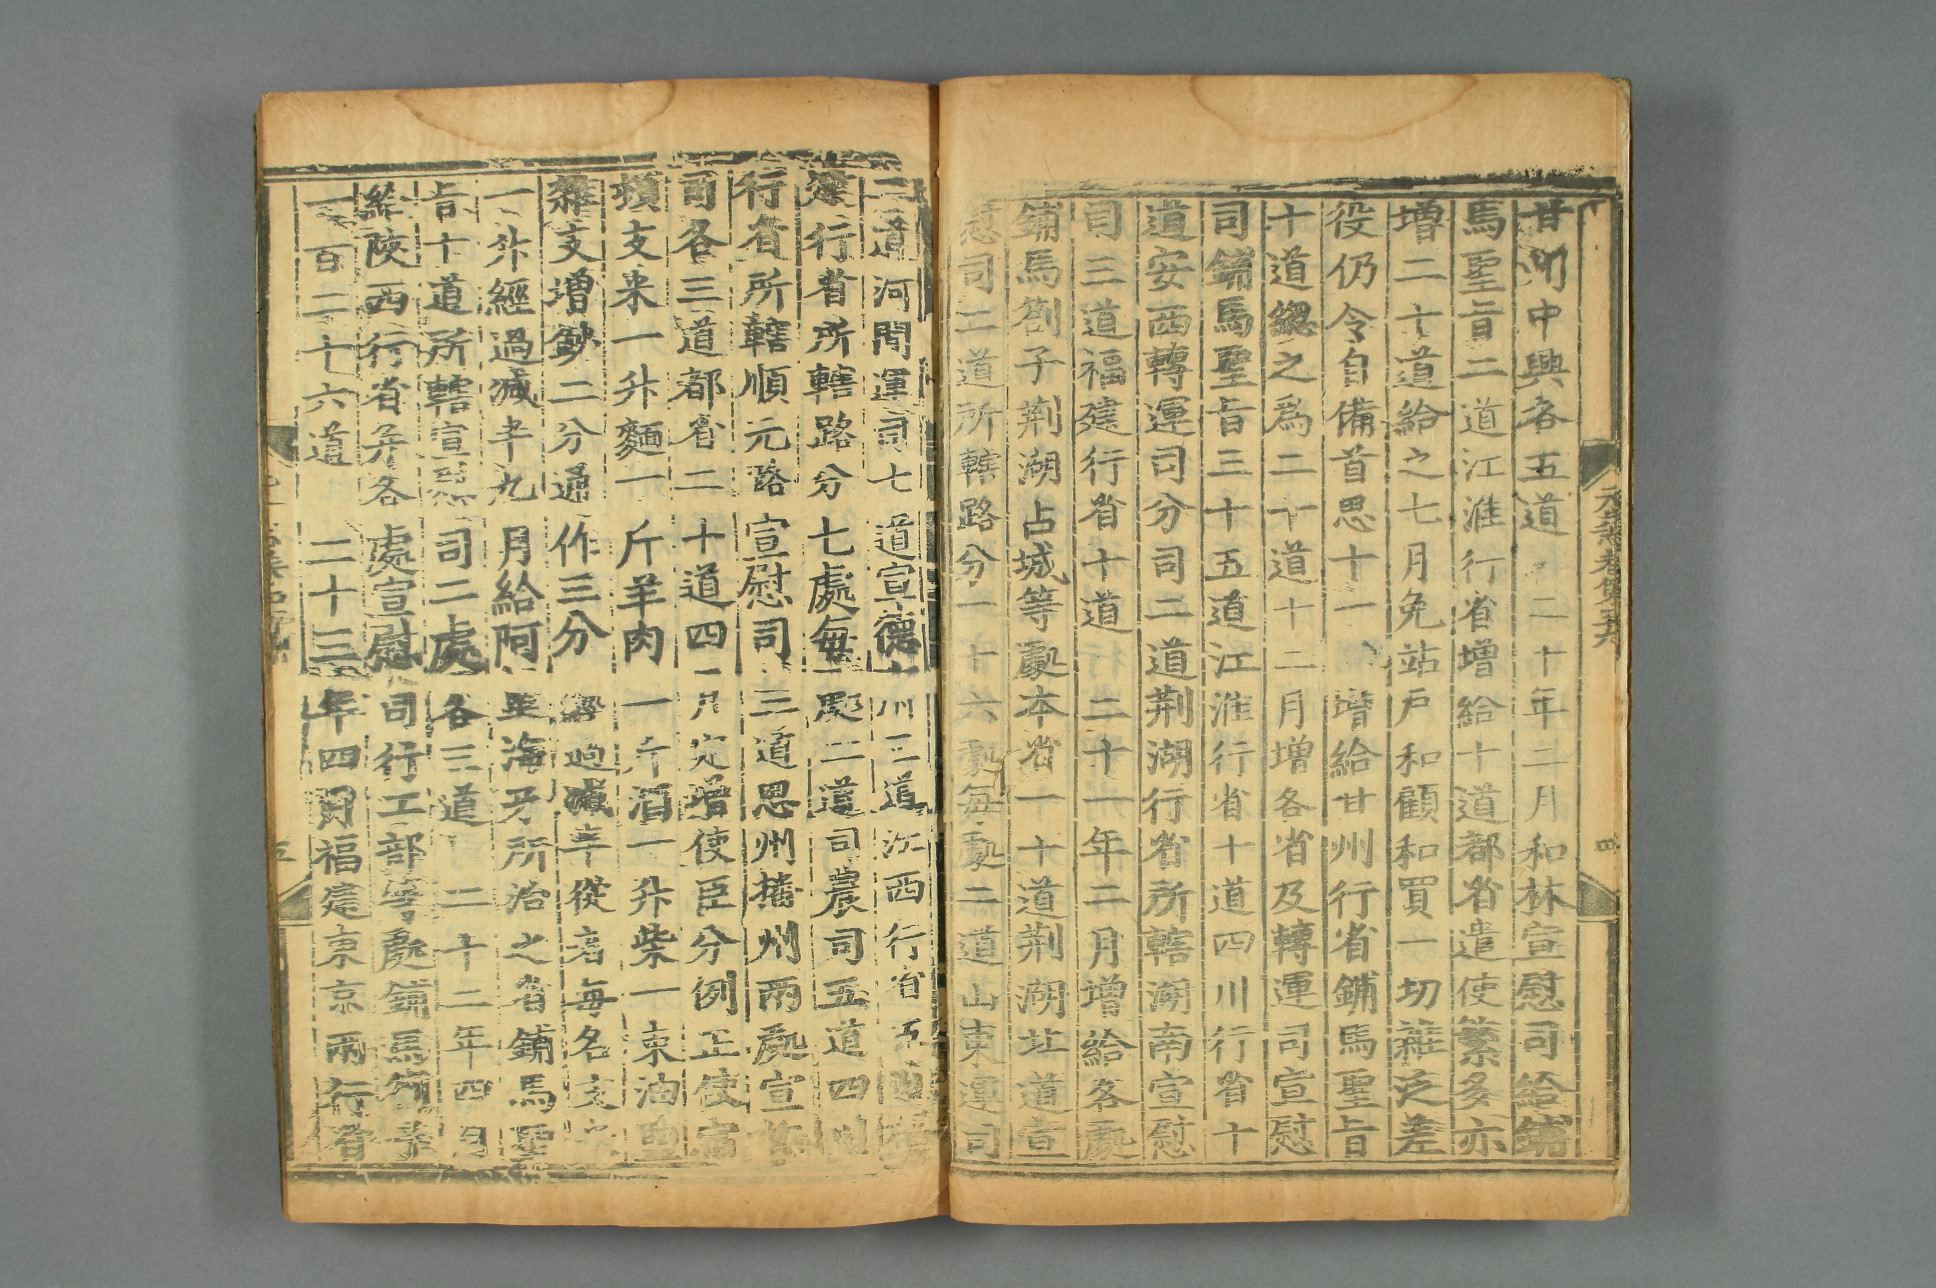 甘州中興各五道 二十年二月和林宣慰司給鋪
馬聖旨二道江淮行省增給十道都省遣使繁多亦
增二十道給之七月免站戶和顧和買一切雜泛差
役仍令自備首思十一 增給甘州行省鋪馬聖旨
十道緫之爲二十道十二月增各省及轉運司宣慰
司鋪馬聖旨三十五道江淮行省十道四川行省十
道安西轉運司分司二道荆湖行省所轄湖南宣慰
司三道福建行省十道 二十一年二月增給各處
鋪馬劄子荆湖占城等處本省一十道荆湖北道宣
慰司二道所轄路分一十六處每處二道山東運司
二道河間運司七道宣德 三道江西行省五道
行省所轄路分七處每 處二道司農司五道四川
行省所轄順元路宣慰司三道思州播州兩處宣
司各三道都省二十道四 月定增使臣分例正使宿
頓支米一升麵一斤羊肉一斤酒一升柴一束油
雜支增鈔二分通作三分 經過減半從者每名支
一升經過減半九月給阿 海牙所治之省鋪馬聖
旨十道所轄宣慰司二處各三道 二十二年四月
給陝西行省并各處宣慰司行工部等處鋪馬
一百二十六道 二十三年四月福建東京兩行省
四
五